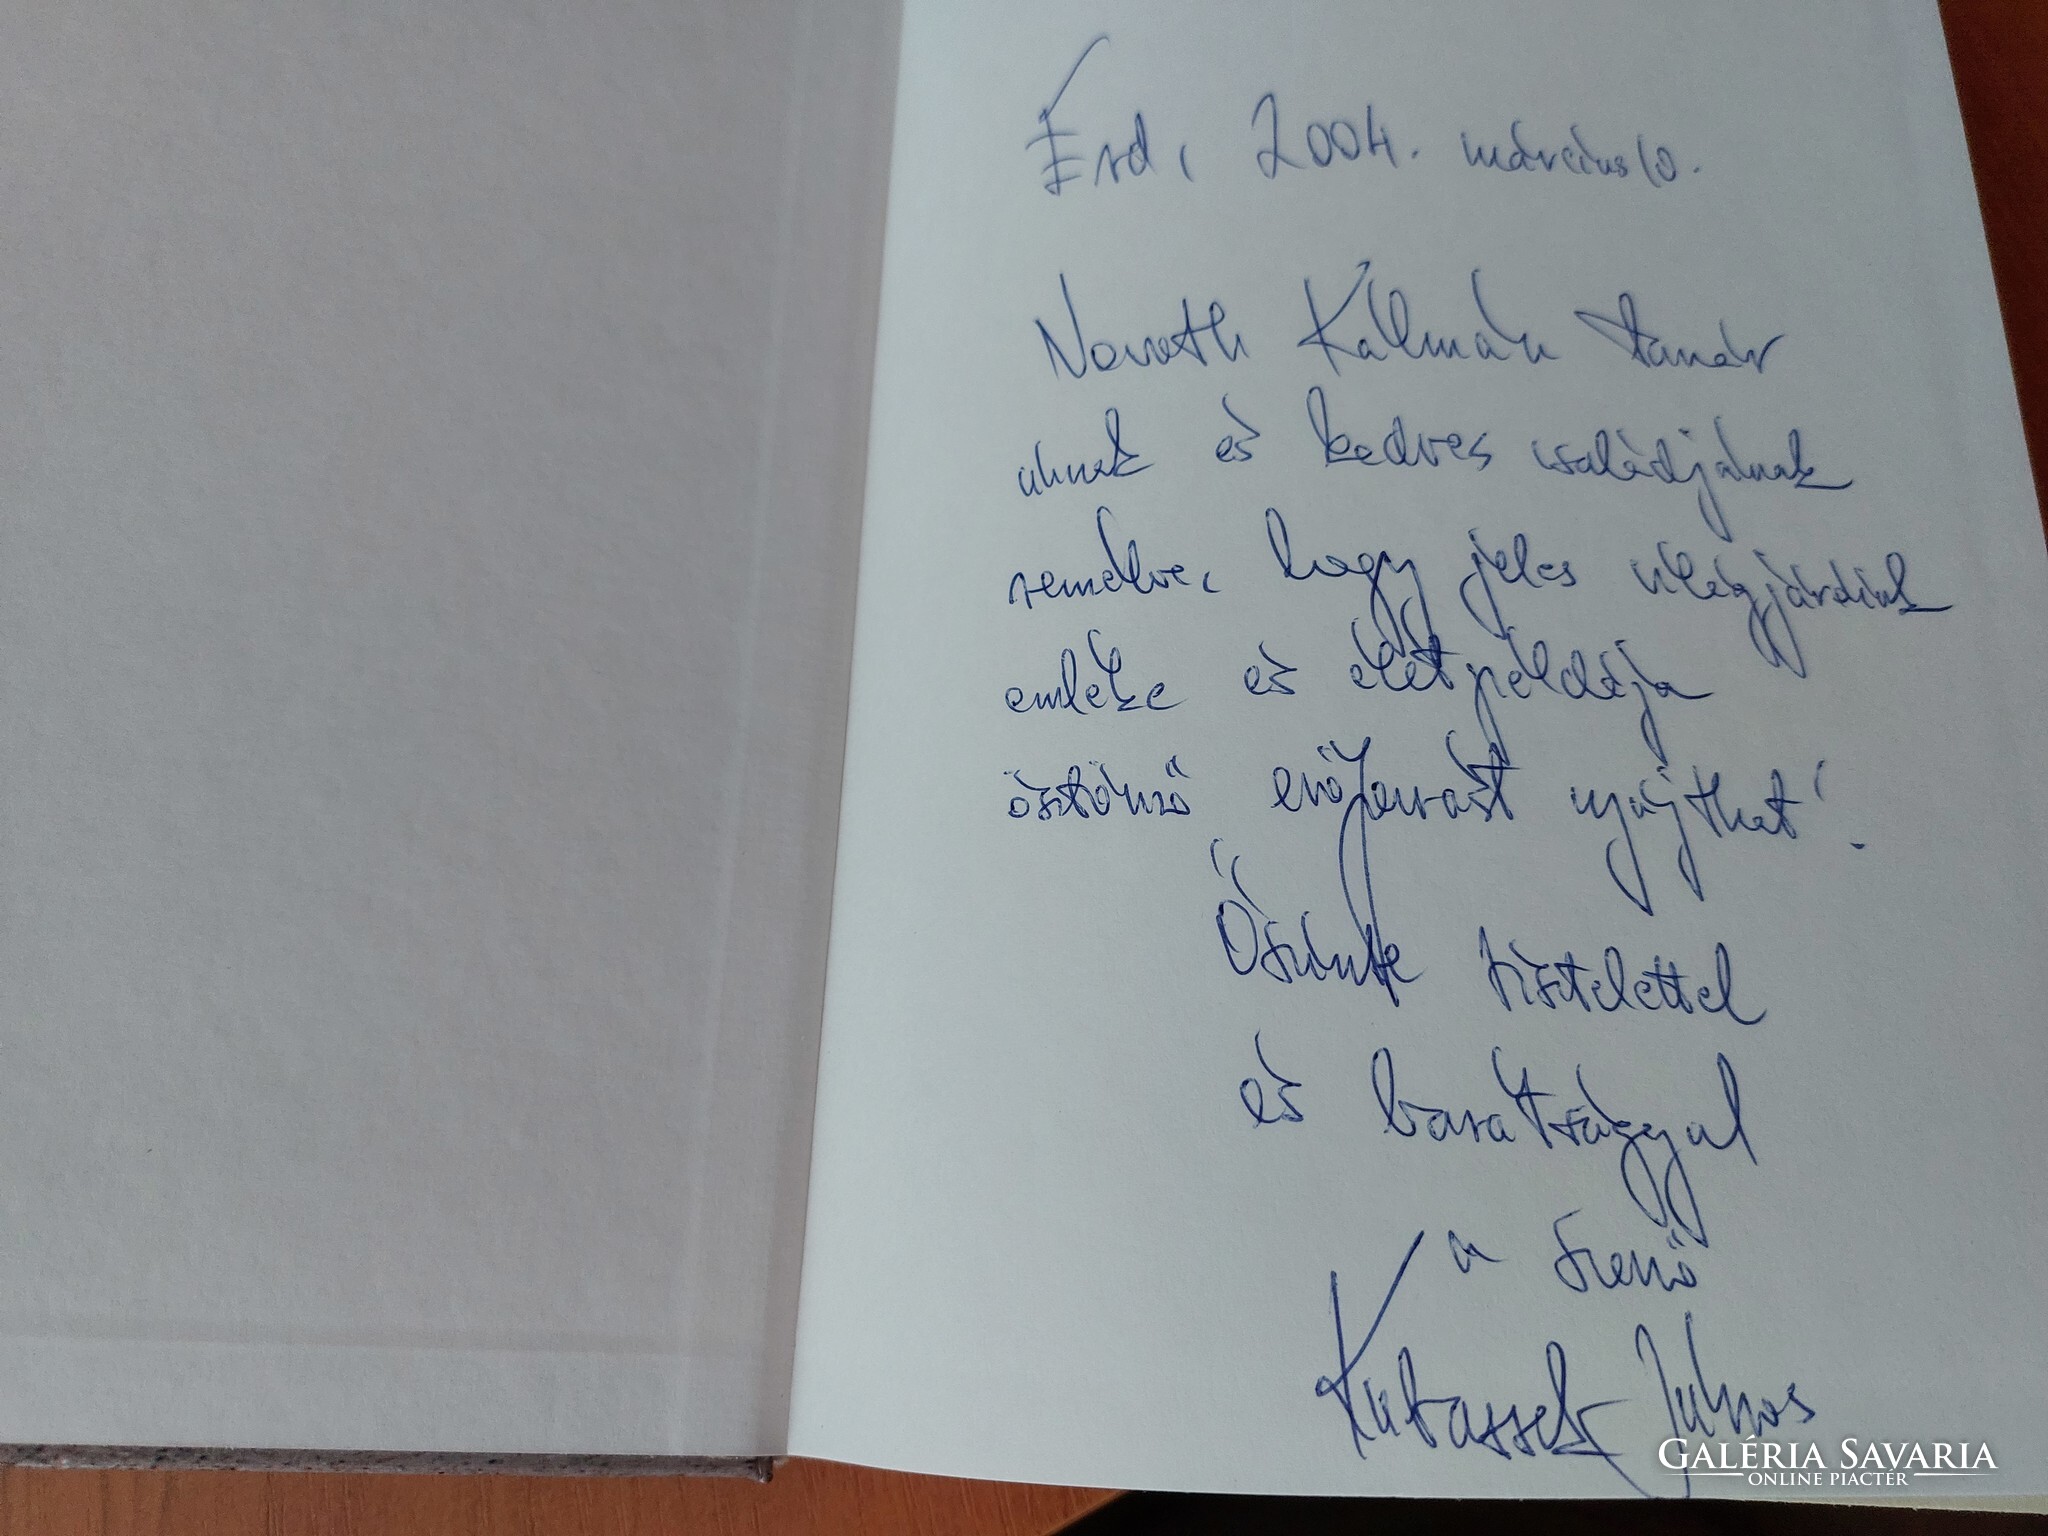 Érd, 2004. március 10.
Novoth Kálmán tanár
úrnak és kedves családjának
remélve, hogy jeles világjáróink
emléke és életpéldája
ösztönző erőforrást nyújthat!
Őszinte tisztelettel
és barátsággal
a szerző
Kubassek János
GALÉRIA SAVARIA
ONLINE PIACTÉR